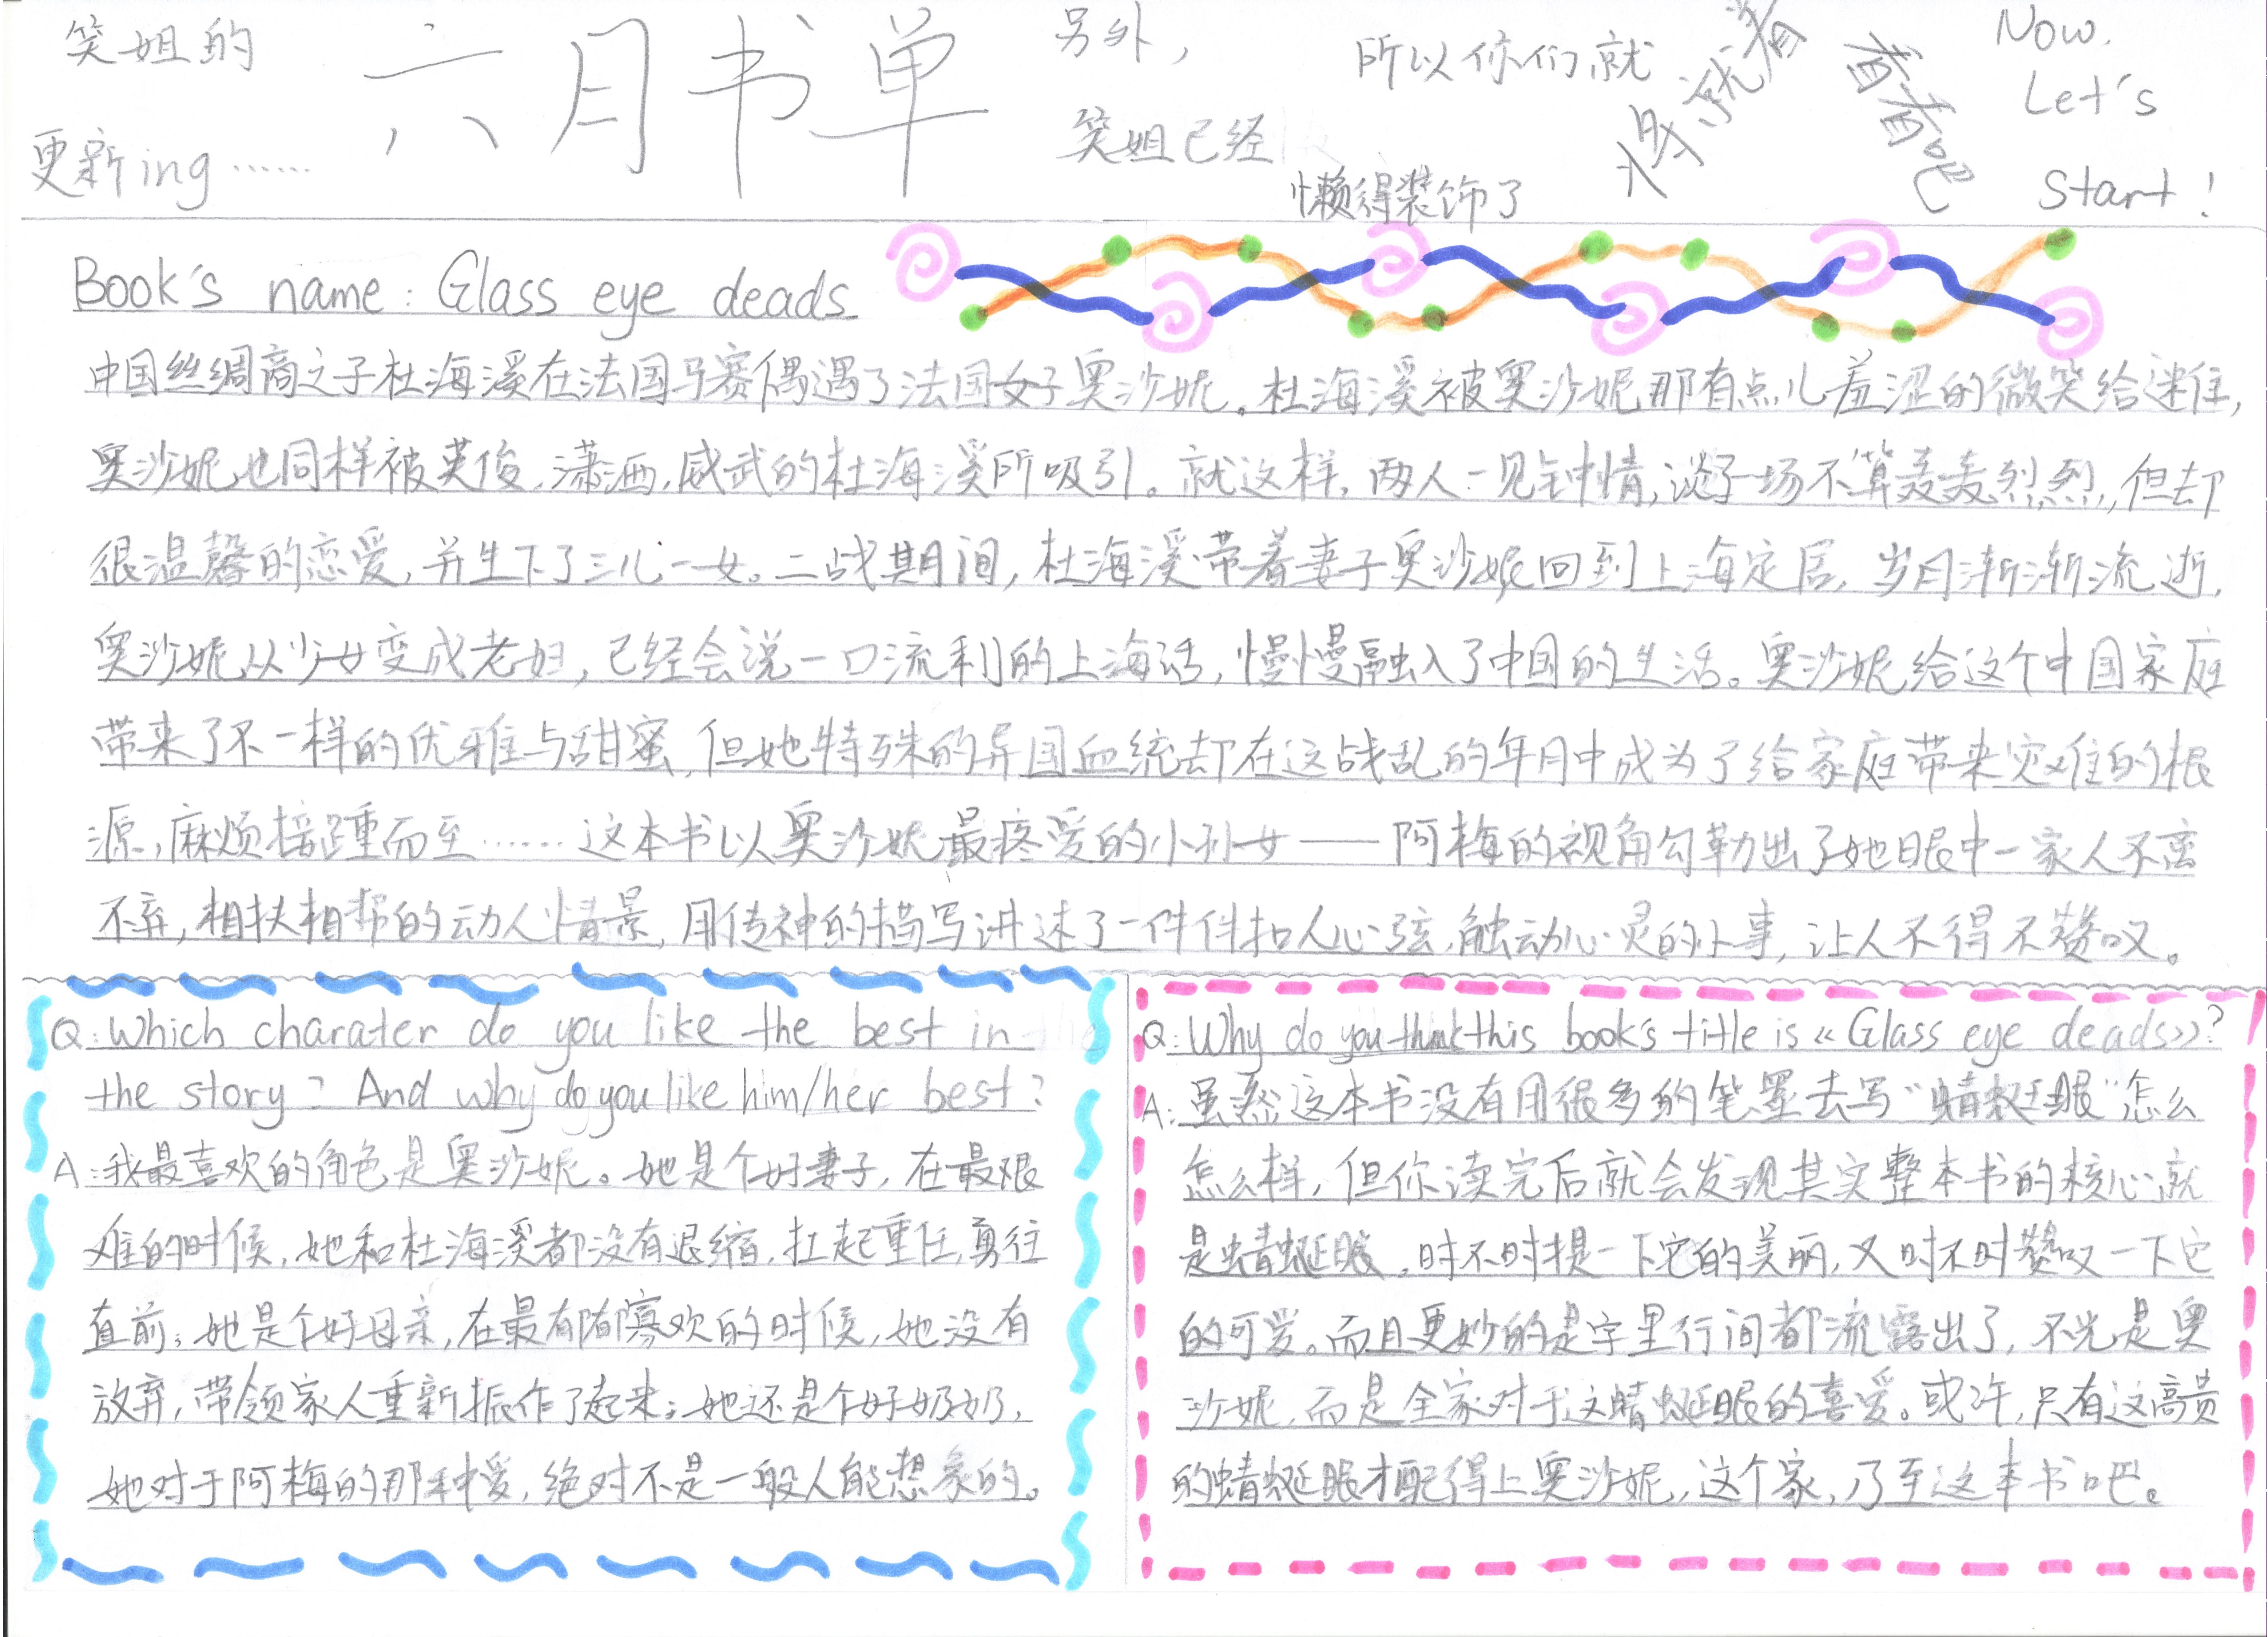 笑姐的
更新ing……
六月书单
另外，
笑姐已经
懒得装饰了
所以你们就
将就着
看看吧
Now,
Let's
Start!
Book's name: Glass eye deads
中国丝绸商之子杜海溪在法国马赛偶遇了法国女子奥沙妮。杜海溪被奥沙妮那有点儿羞涩的微笑给迷住，
奥沙妮也同样被英俊，潇洒，威武的杜海溪所吸引。就这样，两人一见钟情，谈了一场不算轰轰烈烈，但却
很温馨的恋爱，并生下了三儿一女。二战期间，杜海溪带着妻子奥沙妮回到上海定居，岁月渐渐流逝，
奥沙妮从少女变成老妇，已经会说一口流利的上海话，慢慢融入了中国的生活。奥沙妮给这个中国家庭
带来了不一样的优雅与甜蜜，但她特殊的异国血统却在这战乱的年月中成为了给家庭带来灾难的根
源，麻烦接踵而至……这本书以奥沙妮最疼爱的小孙女——阿梅的视角勾勒出了她眼中一家人不离
不弃，相扶相帮的动人情景，用传神的描写讲述了一件件扣人心弦，触动心灵的小事，让人不得不赞叹。
Q: Which charater do you like the best in
the story? And why do you like him/her best?
A:我最喜欢的角色是奥沙妮。她是个好妻子，在最艰
难的时候，她和杜海溪都没有退缩，扛起重任，勇往
直前；她是个好母亲，在最郁郁寡欢的时候，她没有
放弃，带领家人重新振作了起来；她还是个好奶奶，
她对于阿梅的那种爱，绝对不是一般人能想象的。
Q: Why do you think this book's title is «Glass eye deads»?
A:虽然这本书没有用很多的笔墨去写“蜻蜓眼”怎么
怎么样，但你读完后就会发现其实整本书的核心就
是蜻蜓眼，时不时提一下它的美丽，又时不时赞叹一下它
的可爱。而且更妙的是字里行间都流露出了，不光是奥
沙妮，而是全家对于这蜻蜓眼的喜爱。或许，只有这高贵
的蜻蜓眼才配得上奥沙妮，这个家，乃至这本书吧。